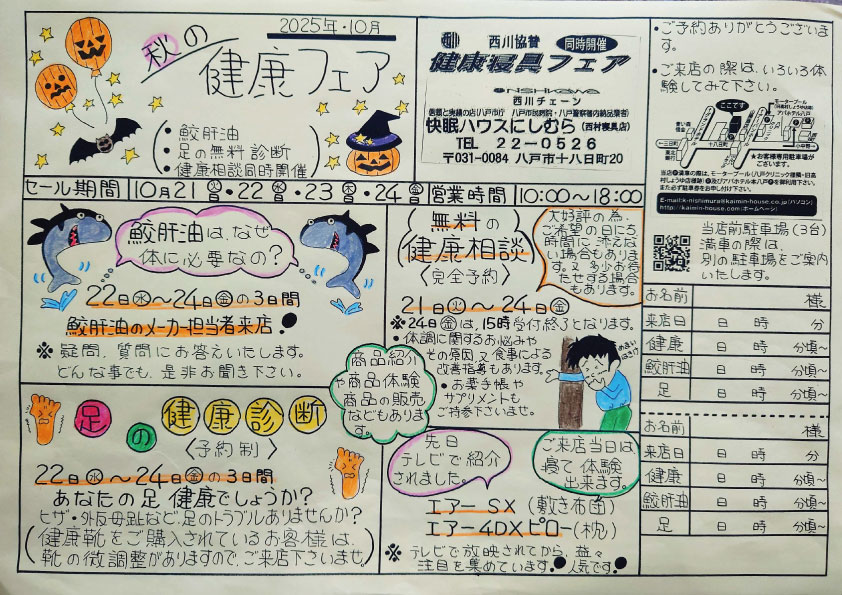 2025年・10月
秋の
健康フェア
・鮫肝油
・足の無料診断
・健康相談同時開催
西川協賛 同時開催
健康寝具フェア
nishikawa
西川チェーン
快眠ハウスにしむら(西村寝具店)
TEL 22-0526
〒031-0084 八戸市十八日町20
・ご予約ありがとうございます。
・ご来店の際は、いろいろ体験してみて下さい。
ここです
モータープール
アパホテル八戸
十三日町
十八日町
★お客様専用駐車場がございます。
E-mail:k-nishimura@kaimin-house.co.jp(パソコン)
http://kaimin-house.com(ホームページ)
当店前駐車場(3台)
満車の際は、
別の駐車場をご案内
いたします。
セール期間 10月21火・22水・23木・24金 営業時間 10:00〜18:00
鮫肝油は、なぜ
体に必要なの?
22日水〜24日金の3日間
鮫肝油のメーカー担当者来店
※疑問、質問にお答えいたします。
どんな事でも、是非お聞き下さい。
無料の
健康相談
〈完全予約〉
大好評の為、
ご希望の日にち、
時間に添えない
場合もあります。
又、多少お待
たせする場合
もあります。
21日火〜24日金
※24日金は、15時受付終了となります。
・体調に関するお悩みや
その原因、又食事による
改善指導もあります。
・お薬手帳や
サプリメントも
ご持参下さいませ。
商品紹介
や商品体験
商品の販売
などもありま
す。
足の健康診断
〈予約制〉
22日水〜24日金の3日間
あなたの足、健康でしょうか?
ヒザ・外反母趾など、足のトラブルありませんか?
(健康靴をご購入されているお客様は、
靴の微調整がありますので、ご来店下さいませ。)
先日
テレビで紹介
されました。
ご来店当日は、
寝て体験
出来ます。
エアーSX(敷き布団)
エアー4DXピロー(枕)
※テレビで放映されてから、益々
注目を集めています。人気です。
お名前 様
来店日 日 時 分
健康 日 時 分頃〜
鮫肝油 日 時 分頃〜
足 日 時 分頃〜
お名前 様
来店日 日 時 分
健康 日 時 分頃〜
鮫肝油 日 時 分頃〜
足 日 時 分頃〜